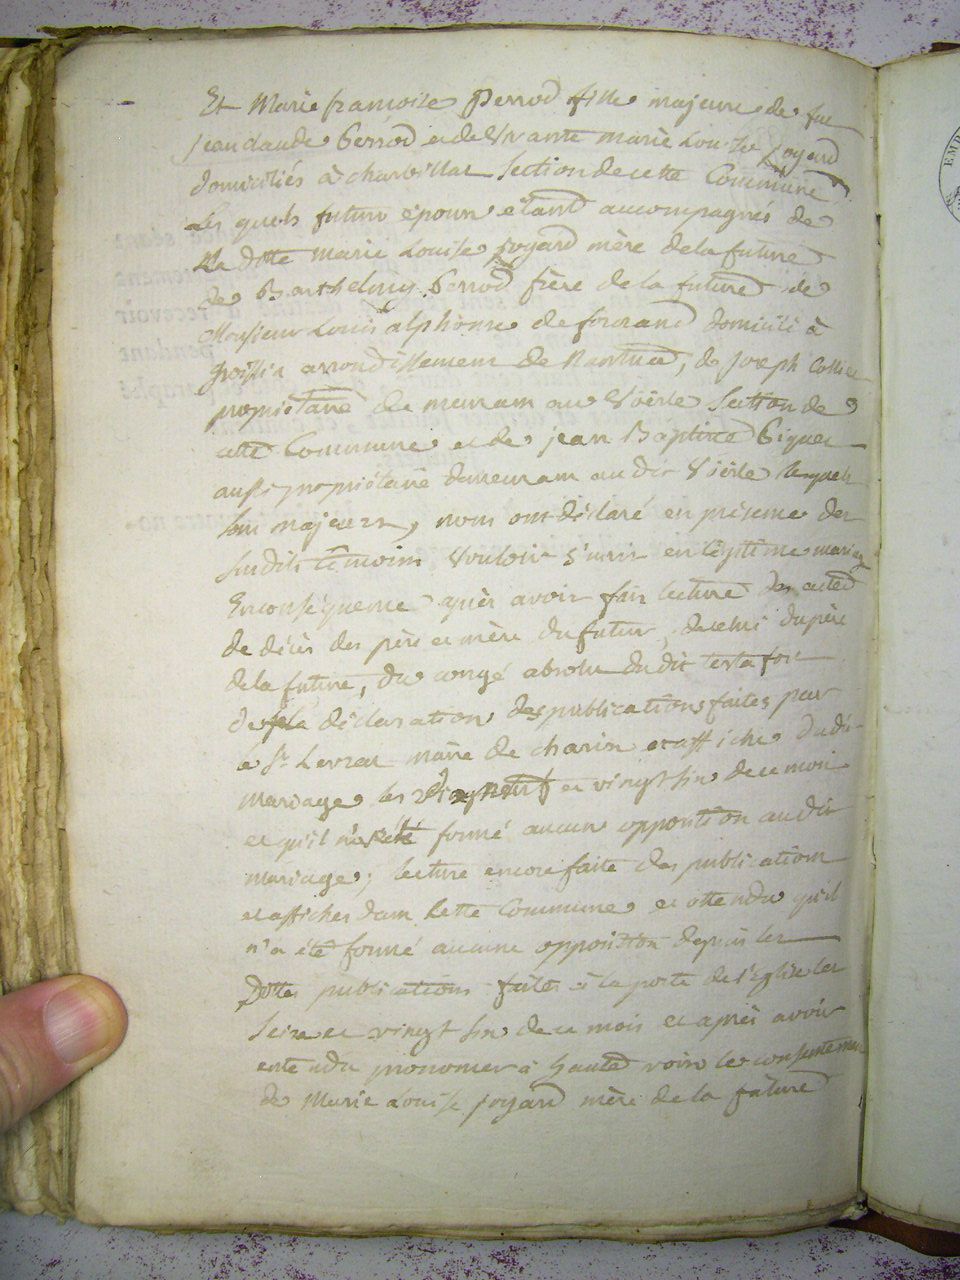 Et Marie francoise Perrod fille majeure de feu
jean claude Perrod et de Vivante marie Louise Joyard
domiciliés à charvillat Section de cette Commune
Les quels futurs époux étant accompagnés de
La ditte marie Louise Joyard mère de la future
de Barthelmy Perrod frère de la future de
Monsieur Louis alphonse de forcrand domicilié à
arrondissement de Nantua, de joseph
propriétaire demeurant au Voërle Section de
cette Commune et de jean Baptiste
aussi propriétaire demeurant au dit Voërle lesquels
sont majeurs, nous ont déclaré en présence des
susdits témoins Vouloir s'unir en légitime mariage
En conséquence après avoir fait lecture des actes
de décès des père et mère du futur, de celui du père
de la future, du congé absolu du dit
de la déclaration des publications faites par
le Sr Levrat maire de charix et affiche dudit
mariage les et vingt six de ce mois
et qu'il n'a été formé aucune opposition audit
mariage; lecture encore faite des publications
et affiches dans cette Commune et attendu qu'il
n'a été formé aucune opposition depuis les
Dittes publications faites à la porte de l'Eglise les
Seize et vingt six de ce mois et après avoir
entendu prononcer à haute voix le consentement
de Marie Louise Joyard mère de la future
EMP